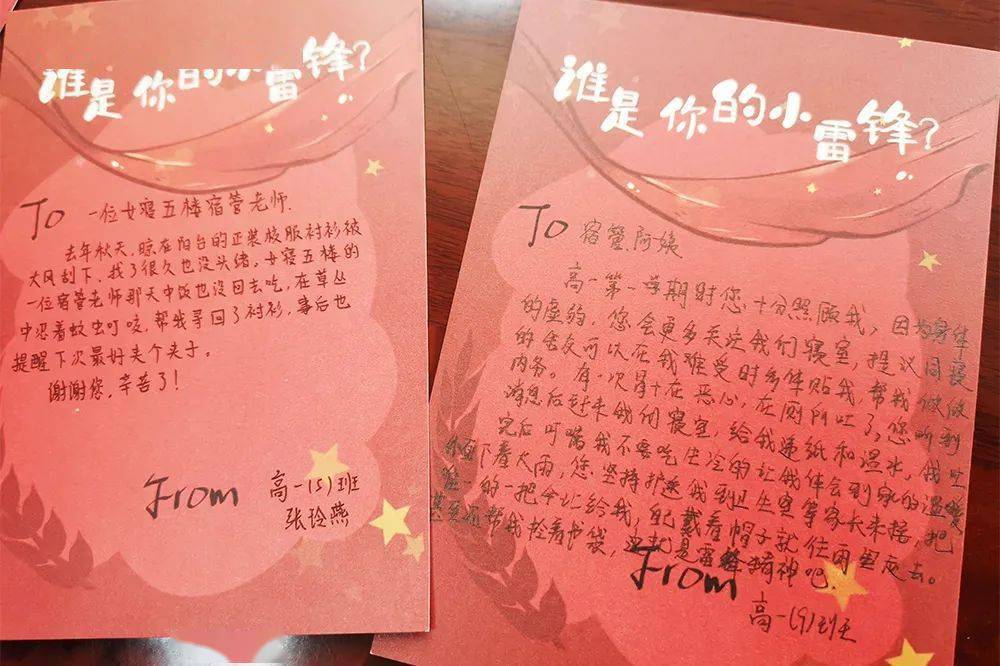 谁是你的小雷锋?
To 一位女寝五楼宿管老师.
去年秋天,晾在阳台的正装校服衬衫被
大风刮下.找了很久也没头绪,女寝五楼的
一位宿管老师那天中饭也没回去吃,在草丛
中忍着蚊虫叮咬,帮我寻回了衬衫,事后也
提醒下次最好夹个夹子。
谢谢您,辛苦了!
From 高一(5)班
张玲燕
谁是你的小雷锋?
To 宿管阿姨
高一第一学期时您十分照顾我,因为身体
的虚弱,您会更多关注我们寝室,提议同寝
的舍友可以在我难受时多体贴我,帮我做做
内务。有一次胃十在恶心,在厕所吐了,您听到
消息后赶来我们寝室,给我递纸和温水,我吐
完后叮嘱我不要吃生冷的让我体会到家的温暖
外面下着大雨,您坚持护送我到卫生室等家长来接,把
唯一的一把伞让给我,戴着帽子就往
帮我拎着书袋,这就是雷锋精神吧.
From
高一(9)班